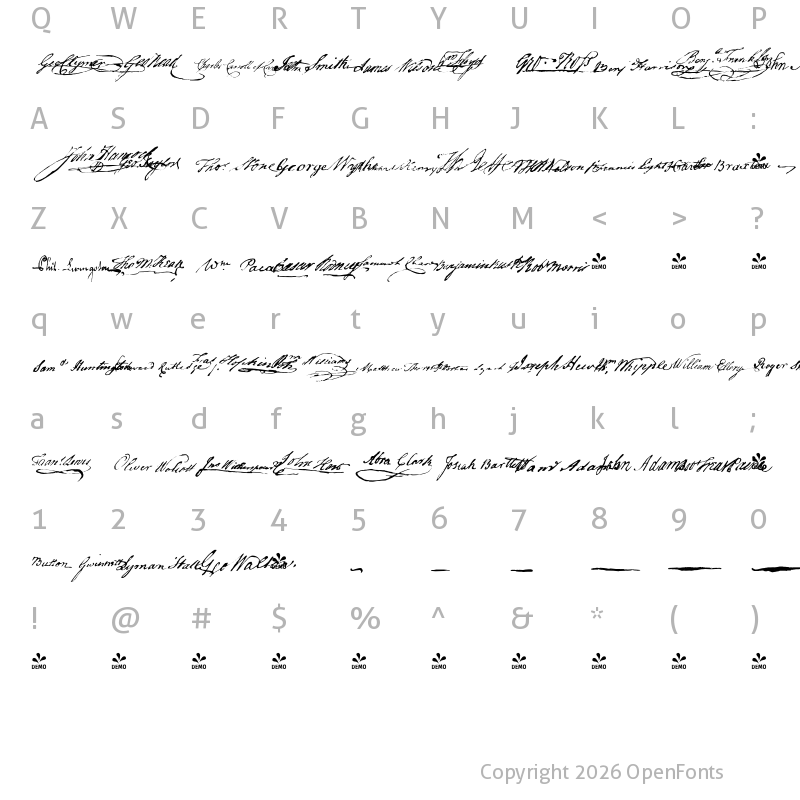 Q W E R T Y U I O P
Geo Clymer Geo Read Charles Carroll of Jas. Smith James Wilson Geo. Ross Benj Harrison Benj. Franklin John
A S D F G H J K L :
John Hancock Geo. Taylor Thos. Stone George Wythe Henry Th Jefferson Nelson Francis Light Carter Braxton
Z X C V B N M < > ?
Phil. Livingston Tho M. Kean Wm Paca Caesar Rodney Samuel Chase Benjamin Rush Robt Morris DEMO DEMO DEMO
q w e r t y u i o p
Sam Huntington Edward Rutledge Step. Hopkins Wm Williams Matthew Thornton Joseph Hewes Wm Whipple William Ellery Roger
a s d f g h j k l ;
Frans. Lewis Oliver Wolcott Jno Witherspoon John Hart Abra Clark Josiah Bartlett Saml Adams John Adams Robt Treat Paine
1 2 3 4 5 6 7 8 9 0
Button Gwinnett Lyman Hall Geo Walton.
! @ # $ % ^ & * ( )
DEMO DEMO DEMO DEMO DEMO DEMO DEMO DEMO DEMO DEMO
Copyright 2026 OpenFonts